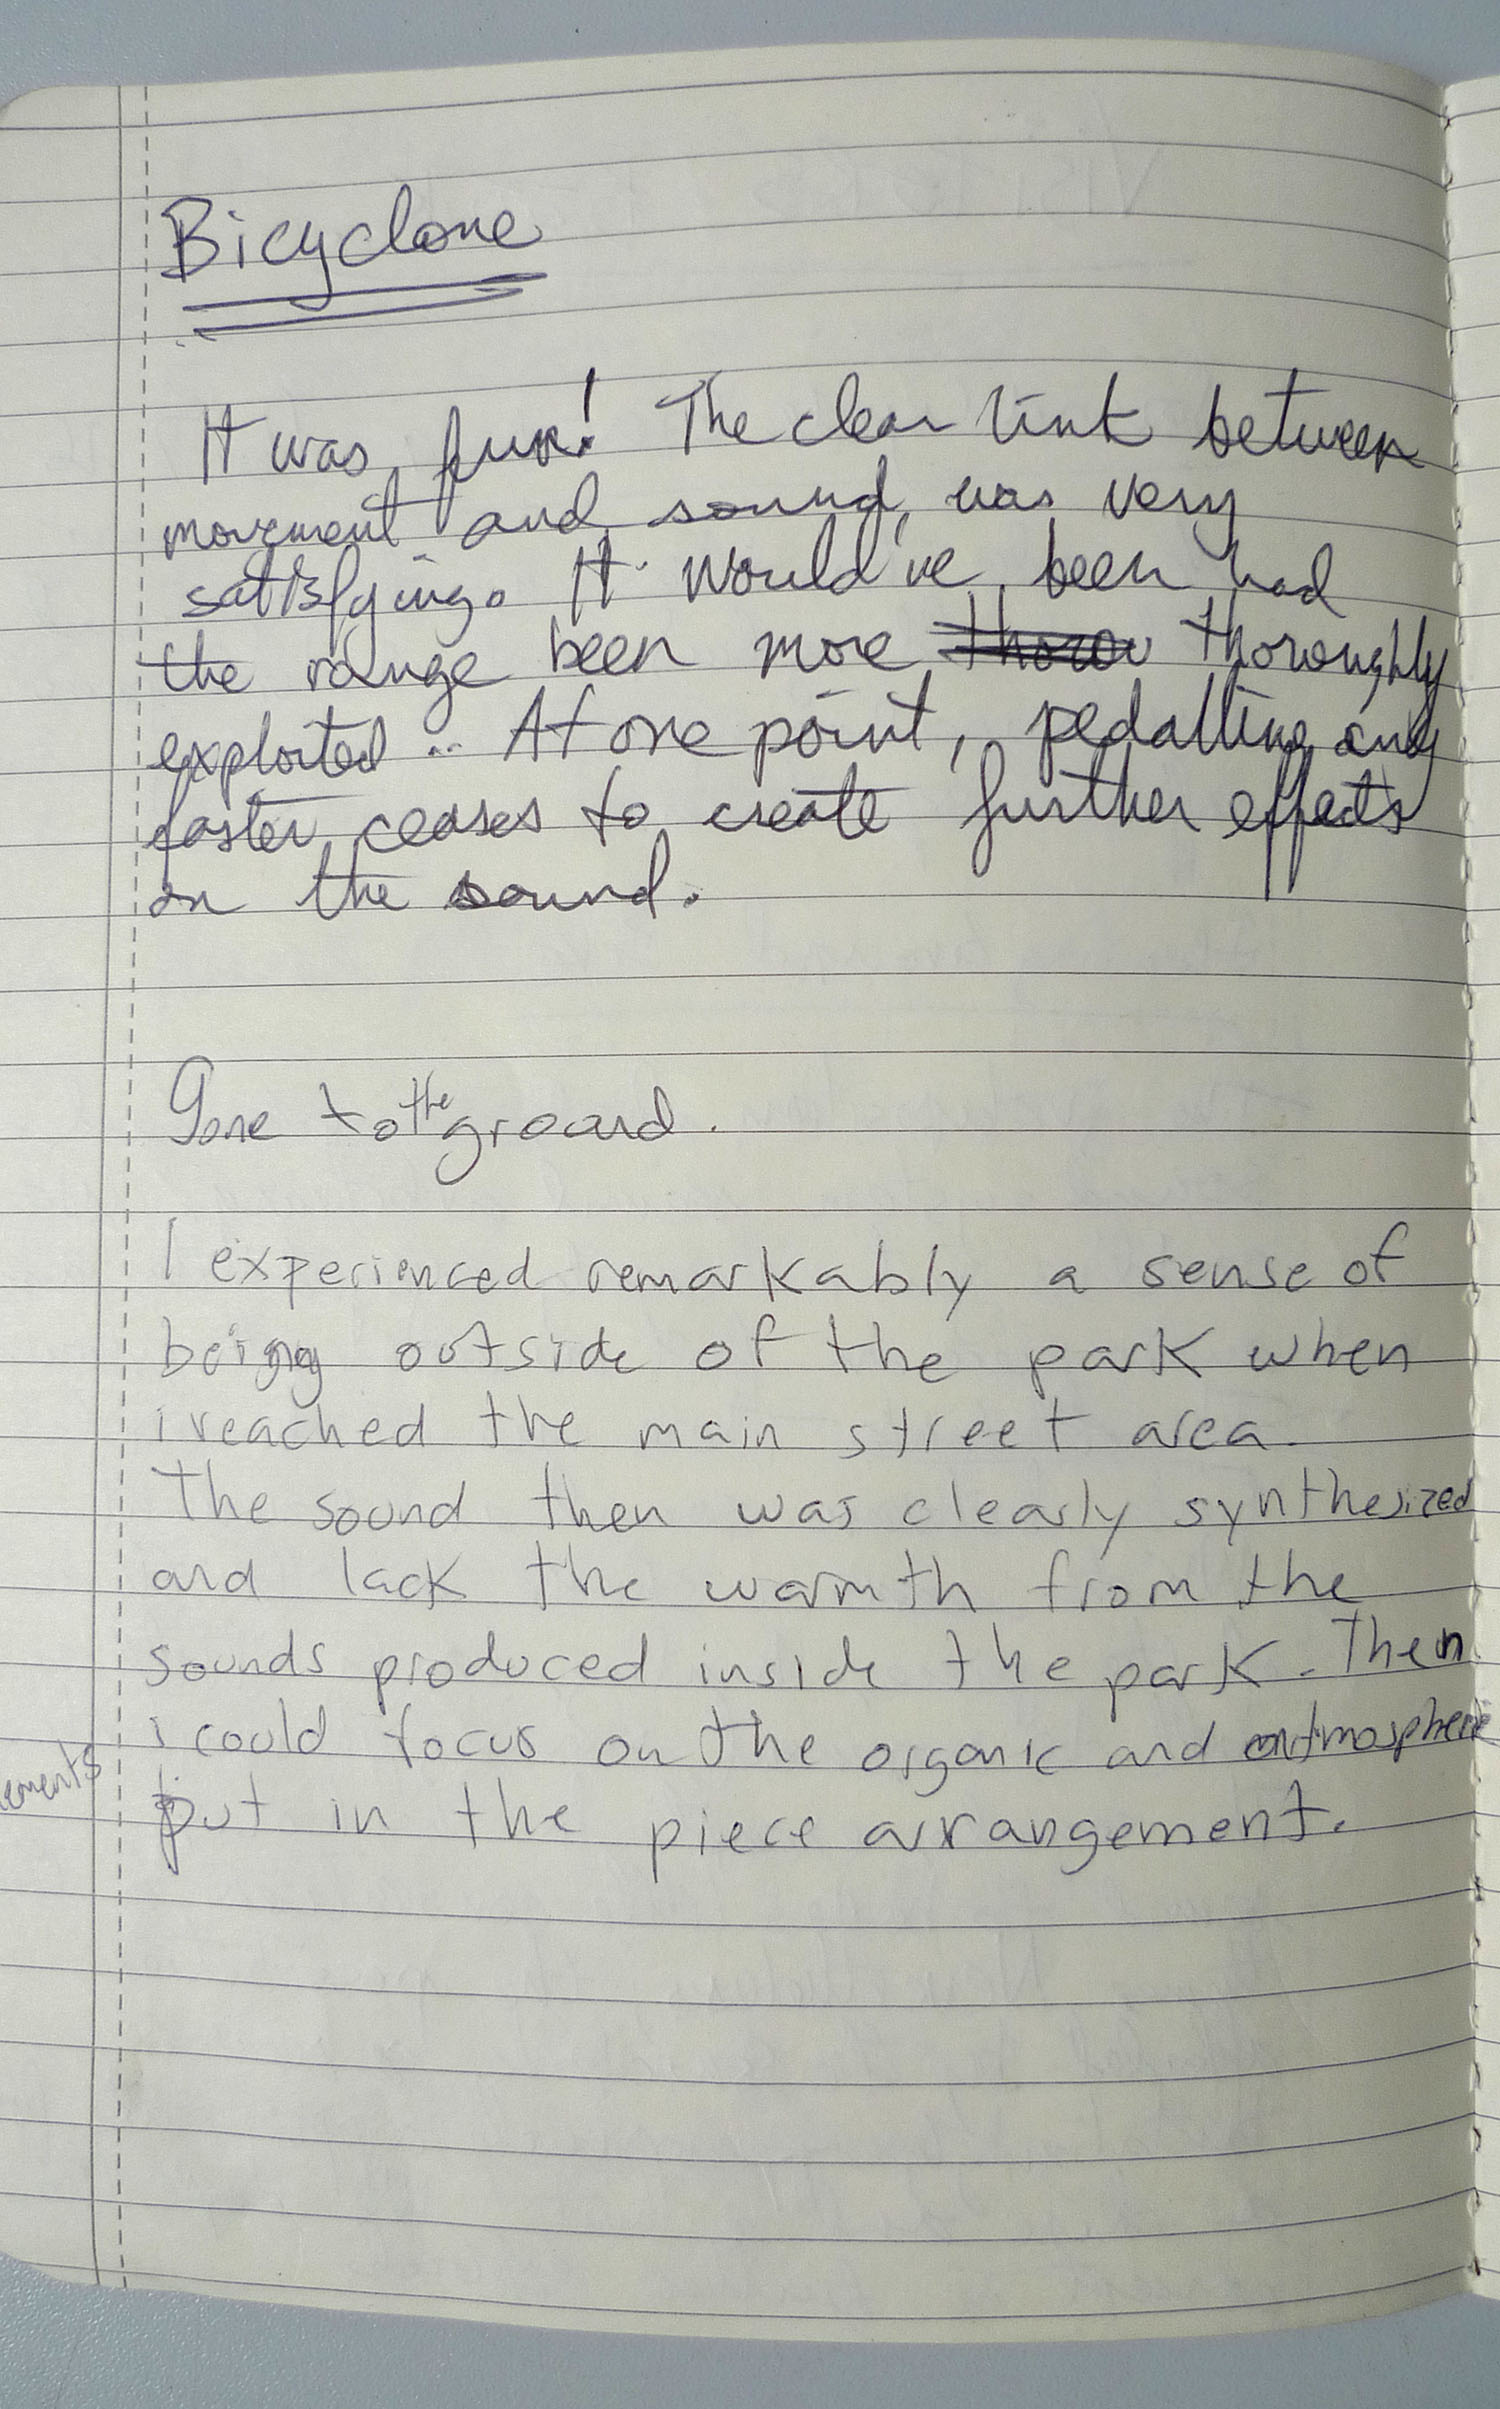 Bicyclone
It was fun! The clear link between
movement and sound, was very
satisfying. It would've been had
the range been more thoroughly
exploited.. At one point, pedalling any
faster ceases to create further effects
on the sound.
Gone to the ground.
I experienced remarkably a sense of
being outside of the park when
i reached the main street area.
The sound then was clearly synthesized
and lack the warmth from the
sounds produced inside the park. Then
i could focus on the organic and
ements put in the piece arrangement.